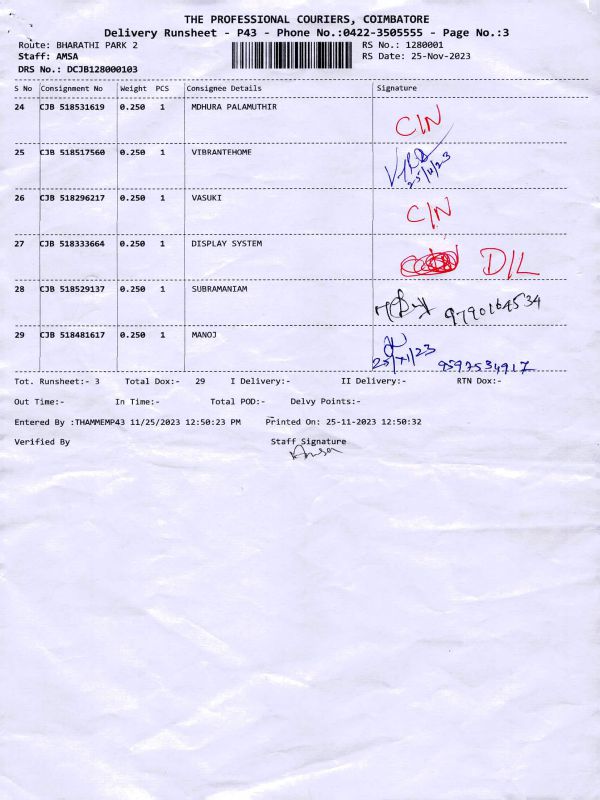 THE PROFESSIONAL COURIERS, COIMBATORE
Delivery Runsheet - P43 - Phone No.:0422-3505555 - Page No.:3
Route: BHARATHI PARK 2 RS No.: 1280001
Staff: AMSA RS Date: 25-Nov-2023
DRS No.: DCJB128000103
S No Consignment No Weight PCS Consignee Details Signature
24 CJB 518531619 0.250 1 MDHURA PALAMUTHIR
C/N
25 CJB 518517560 0.250 1 VIBRANTEHOME
25/11/23
26 CJB 518296217 0.250 1 VASUKI
C/N
27 CJB 518333664 0.250 1 DISPLAY SYSTEM
D/L
28 CJB 518529137 0.250 1 SUBRAMANIAM
9790164534
29 CJB 518481617 0.250 1 MANOJ
25/11/23 9597534917
Tot. Runsheet:- 3 Total Dox:- 29 I Delivery:- II Delivery:- RTN Dox:-
Out Time:- In Time:- Total POD:- Delvy Points:-
Entered By :THAMMEMP43 11/25/2023 12:50:23 PM Printed On: 25-11-2023 12:50:32
Verified By Staff Signature
Amsa